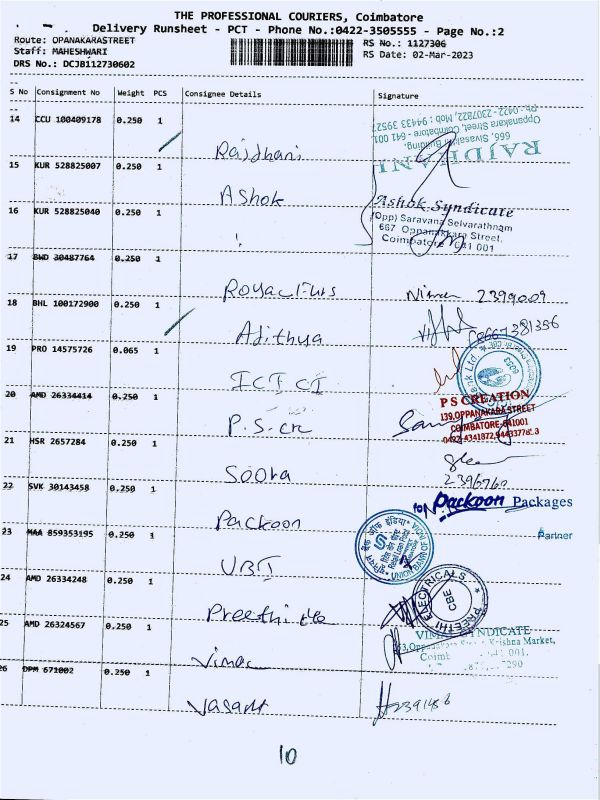 THE PROFESSIONAL COURIERS, Coimbatore
Delivery Runsheet - PCT - Phone No.:0422-3505555 - Page No.:2
Route: OPANAKARASTREET
RS No.: 1127306
Staff: MAHESHWARI
RS Date: 02-Mar-2023
DRS No.: DCJB112730602
S No Consignment No Weight PCS Consignee Details Signature
14 CCU 100409178 0.250 1 Rajdhani
RAJDHANI
666, Sivasakthi Building,
Oppanakara Street, Coimbatore - 641 001
Ph : 0422 - 2307822, Mob : 94433
15 KUR 528825007 0.250 1 Ashok
Ashok Syndicate
(Opp) Saravana Selvarathnam
667 Oppanakkara Street,
Coimbatore 641 001
16 KUR 528825040 0.250 1
17 BWD 30487764 0.250 1 2399009
18 BHL 100172900 0.250 1 Adithya
19 PRO 14575726 0.065 1 ICICI
20 AMD 26334414 0.250 1 P.S.cre
P S CREATION
139,OPPANAKARA STREET
COIMBATORE-641001
21 HSR 2657284 0.250 1 Soora
2396760
22 SVK 30143458 0.250 1 Packoon
for Packoon Packages
Partner
23 MAA 859353195 0.250 1 UBI
यूनियन बैंक ऑफ इंडिया
UNION BANK OF INDIA
24 AMD 26334248 0.250 1 Preethi
PREETHI ELECTRICALS
CBE
25 AMD 26324567 0.250 1 Vimal
VIMAL SYNDICATE
Krishna Market,
26 DPM 671002 0.250 1 Vasant
10